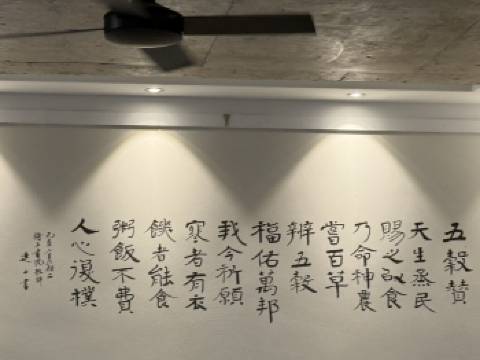 五穀贊
天生蒸民
賜之以食
乃命神農
嘗百草
辨五穀
福佑萬邦
我今祈願
寒者有衣
餓者能食
粥飯不費
人心復樸